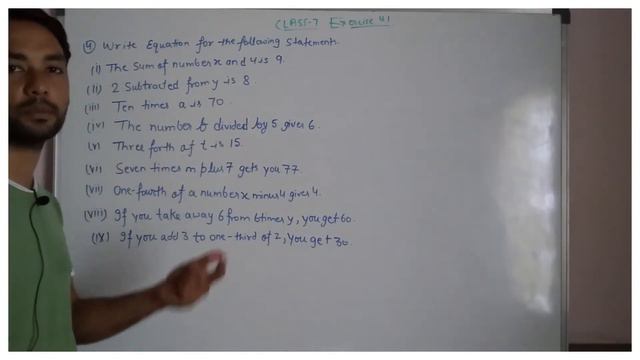 CLASS-7 Exercise 4.1
④ Write Equation for the following statement.
(i) The Sum of number x and 4 is 9.
(ii) 2 Subtracted from y is 8
(iii) Ten times a is 70.
(iv) The number b divided by 5 gives 6.
(v) Three forth of t is 15.
(vi) Seven times m plus 7 gets you 77.
(vii) One-fourth of a number x minus 4 gives 4.
(viii) If you take away 6 from 6 times y, you get 60.
(ix) If you add 3 to one-third of z, you get 30.